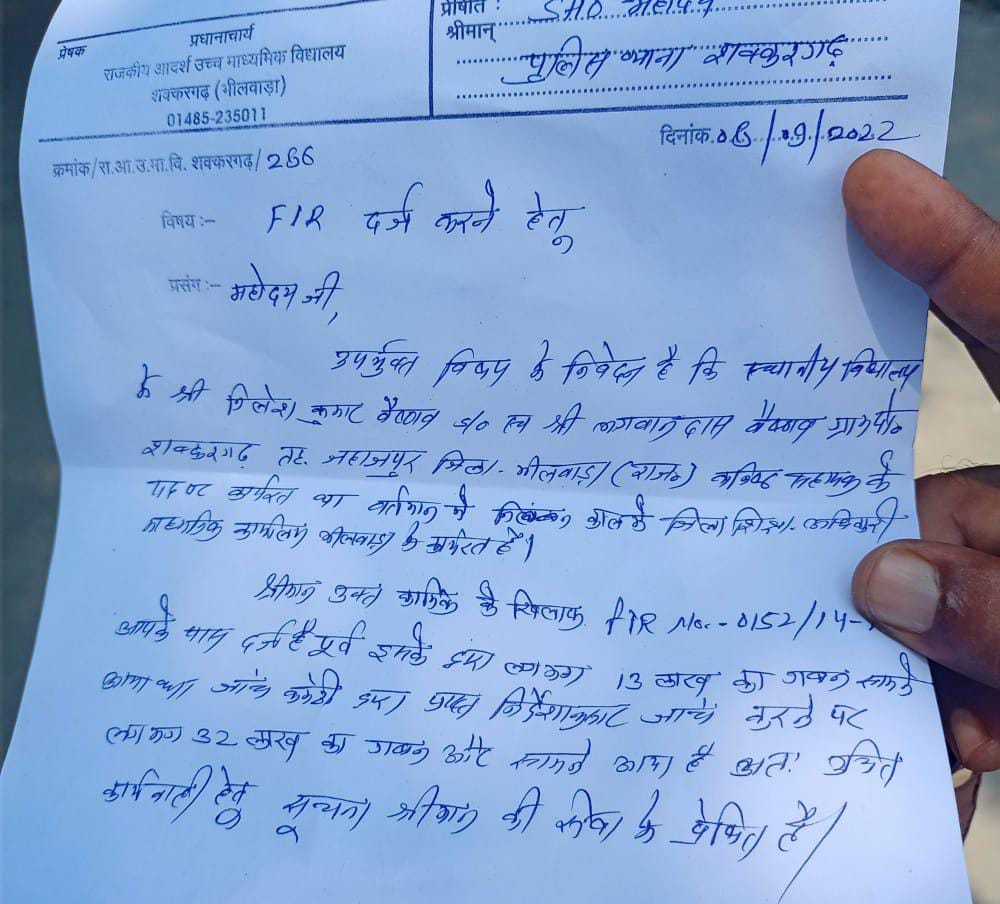 प्रेषक
प्रधानाचार्य
राजकीय आदर्श उच्च माध्यमिक विद्यालय
शक्करगढ़ (भीलवाड़ा)
01485-235011
प्रेषित : SHO महोदय
श्रीमान्
पुलिस थाना शक्करगढ़
दिनांक. 06/09/2022
क्रमांक/रा.आ.उ.मा.वि. शक्करगढ़/ 266
विषय :- FIR दर्ज करने हेतू
प्रसंग :- महोदय जी,
उपर्युक्त विषय के निवेदन है कि स्थानीय विद्यालय
के श्री निलेश कुमार वैष्णव s/o स्व श्री भगवान दास वैष्णव ग्राम पो०
शक्करगढ़ तह. जहाजपुर जिला - भीलवाड़ा (राज०) कनिष्ठ सहायक के
पद पर कार्यरत था वर्तमान मे निलंबन काल मे जिला शिक्षा अधिकारी
माध्यमिक कार्यालय भीलवाड़ा के कार्यरत है।
श्रीमान उक्त कार्मिक के खिलाफ FIR No. - 0152/14-
आपके पास दर्ज है पूर्व इसके द्वारा लगभग 13 लाख का गबन सामने
आया था जांच कमेटी द्वारा प्राप्त निर्देशानुसार जांच करने पर
लगभग 32 लाख का गबन और सामने आया है अतः उचित
कार्यवाही हेतू सूचना श्रीमान की सेवा के प्रेषित है।